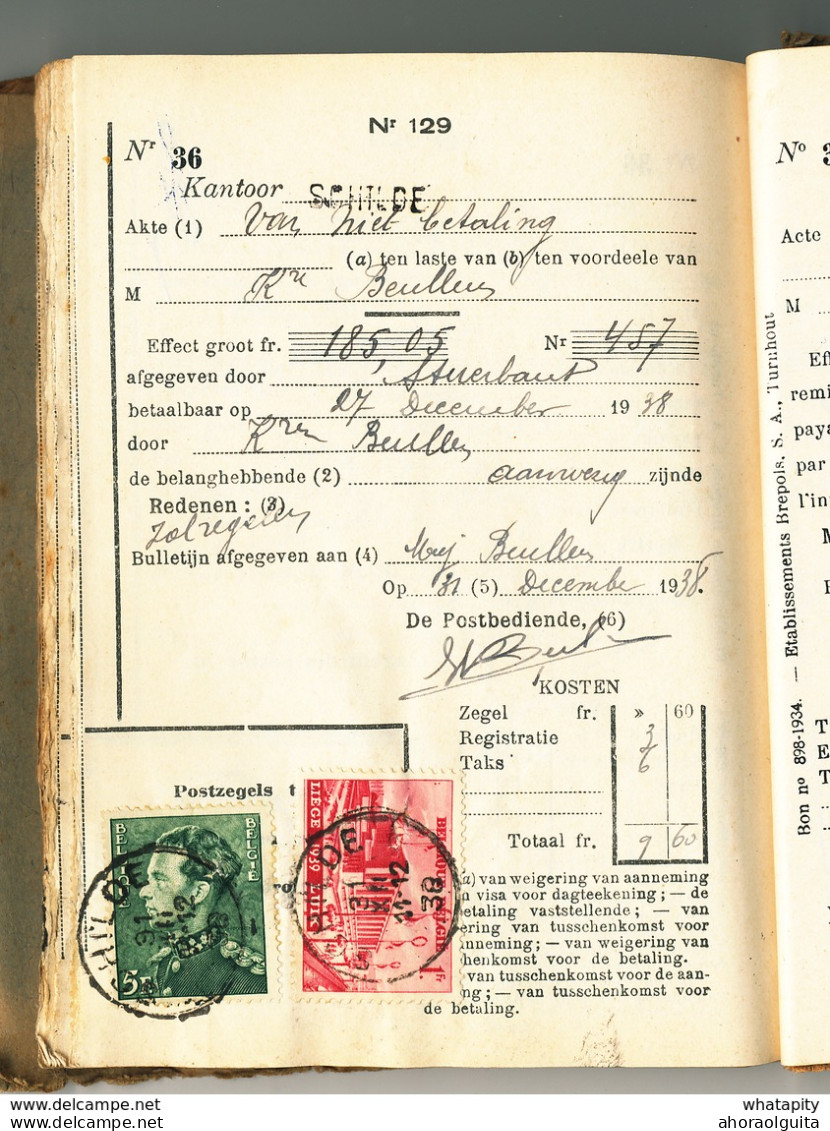 Nr 129
Nr 36
Kantoor SCHILDE
Akte (1) Van niet betaling
(a) ten laste van (b) ten voordeele van
M Kre Beullens
Effect groot fr. 185,05 Nr 457
afgegeven door
betaalbaar op 27 December 1938
door Beullens
de belanghebbende (2) aanwezig zijnde
Redenen : (3)
Bulletijn afgegeven aan (4) Mej Beullens
Op 31 (5) December 1938.
De Postbediende, (6)
KOSTEN
Zegel fr. » 60
Registratie 3
Taks 6
Totaal fr. 9 60
Postzegels t
BELGIQUE BELGIË
5F
LIEGE 1939 LUIK
BELGIQUE BELGIE
1 Fr
SCHILDE
31
XII
11-12
38
a) van weigering van aanneming
n visa voor dagteekening ; — de
etaling vaststellende ; — van
ering van tusschenkomst voor
nneming ; — van weigering van
chenkomst voor de betaling.
van tusschenkomst voor de aan-
ng ; — van tusschenkomst voor
de betaling.
No 3
Acte
M
Eff
remi
paya
par
l'in
Bon no 898-1934. — Etablissements Brepols, S. A., Turnhout
whatapity
ahoraolguita